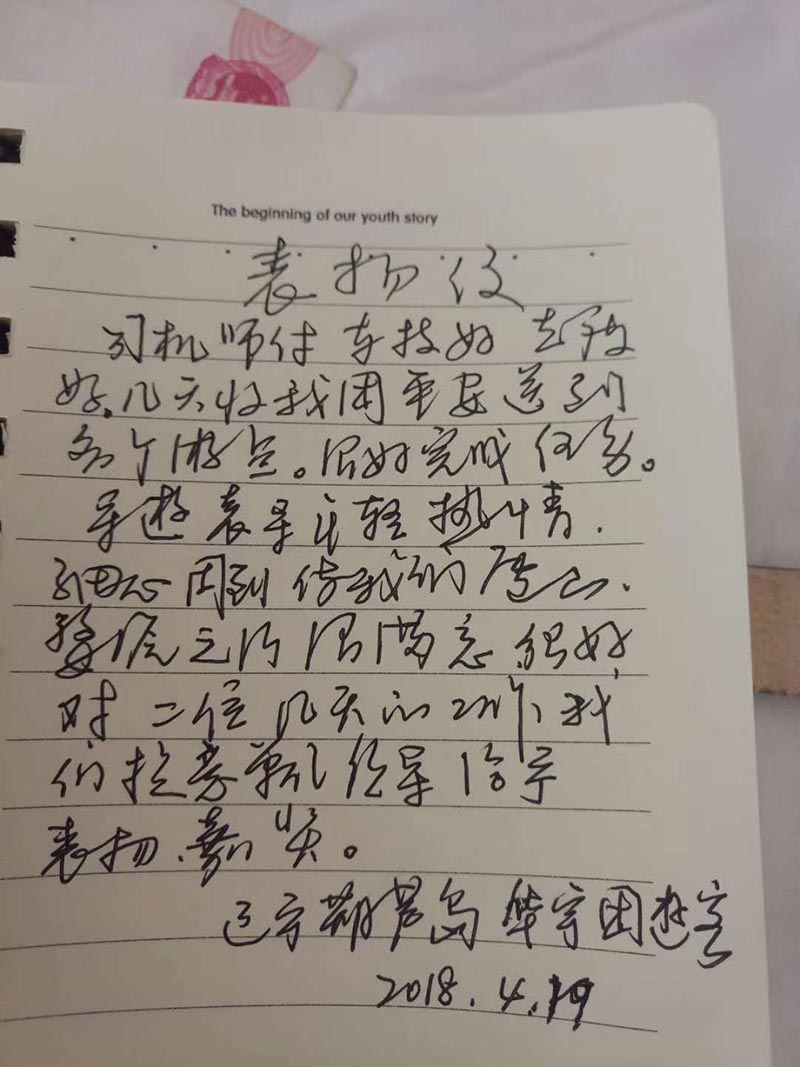 The beginning of our youth story
表扬信
司机师付 车技好 态度
好。几天将我团平安送到
各个游点。很好完成任务。
导遊袁导年轻 热情.
细心周到 使我们
之行很满意 很好
对二位几天的工作、我
们 领导给予
表扬、嘉奖。
辽宁葫芦岛 华宇团遊客
2018.4.19